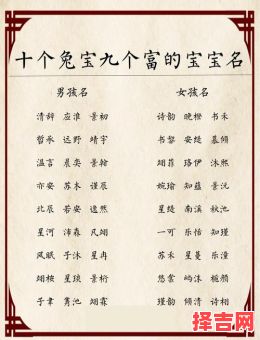 十个兔宝九个富的宝宝名
男孩名 女孩名
清辞 应淮 景初 诗韵 晚橙 书禾
哲承 远野 靖宇 书黎 安缇 慕倾
温言 晨奕 景翰 翊菲 珞伊 沐熙
亦安 苏木 谨辰 婉瑜 知蕴 景沅
北辰 若安 逸然 星缇 南溪 秋池
星河 沛森 凡翊 一可 乐怡 知瑾
风眠 于沐 星冉 苏禾 星蔓 乐潼
翊桉 星琰 景析 悠棠 屿沫 栀颜
于聿 隽池 翊霖 瑾韵 倾清 诗栩
择吉网